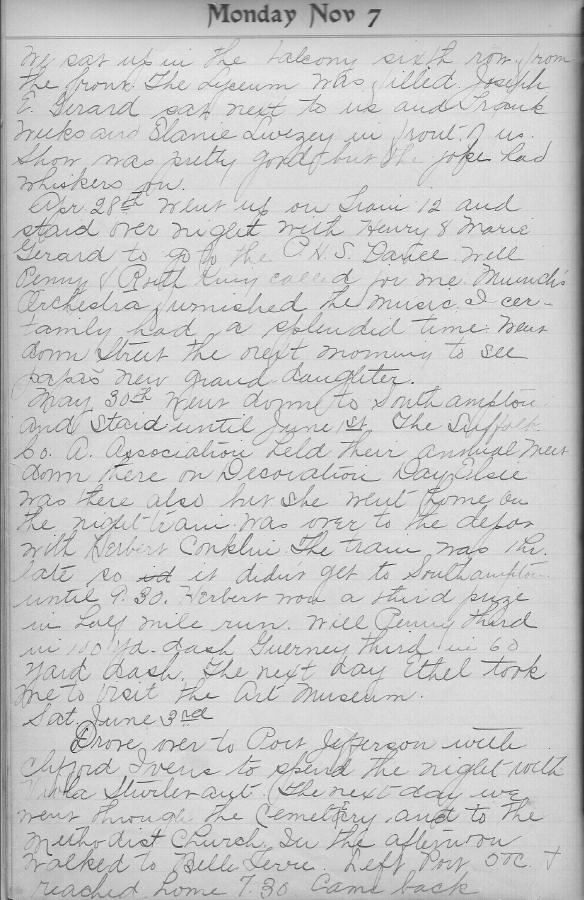 Monday Nov 7
We sat up in the balcony sixth row from
the front. The Lyceum was filled. Joseph
E. Gerard sat next to us and Frank
Weeks and Elanie Livezey in front of us.
Show was pretty good but the joke had
whiskers on.
Apr. 28th Went up on Train 12 and
staid over night with Henry & Marie
Gerard to go to the P.H.S. Dance. Will
Penny & Ruth King called for me. Muench's
Orchestra furnished the music. I cer-
tainly had a splendid time. Went
down Street the next morning to see
papa's new grand daughter.
May 30th Went down to Southampton
and Staid until June 1st. The Suffolk
Co. A. Association held their annual meet
down there on Decoration Day. Elsie
was there also but she went home on
the night train. Was over to the depot
with Herbert Conklin. The train was 1 hr.
late so it didn't get to Southampton
until 9.30. Herbert won a third prize
in half mile run. Will Penny third
in 100 yd. dash Guerney third in 60
yard dash. The next day Ethel took
me to visit the Art Museum.
Sat. June 3rd
Drove over to Port Jefferson with
Clifford Ivens to spend the night with
Viola Sturtevant. The next day we
went through the Cemetery and to the
Methodist Church. In the afternoon
walked to Belle Terre. Left Port 5 o'c. +
reached home 7.30 Came back